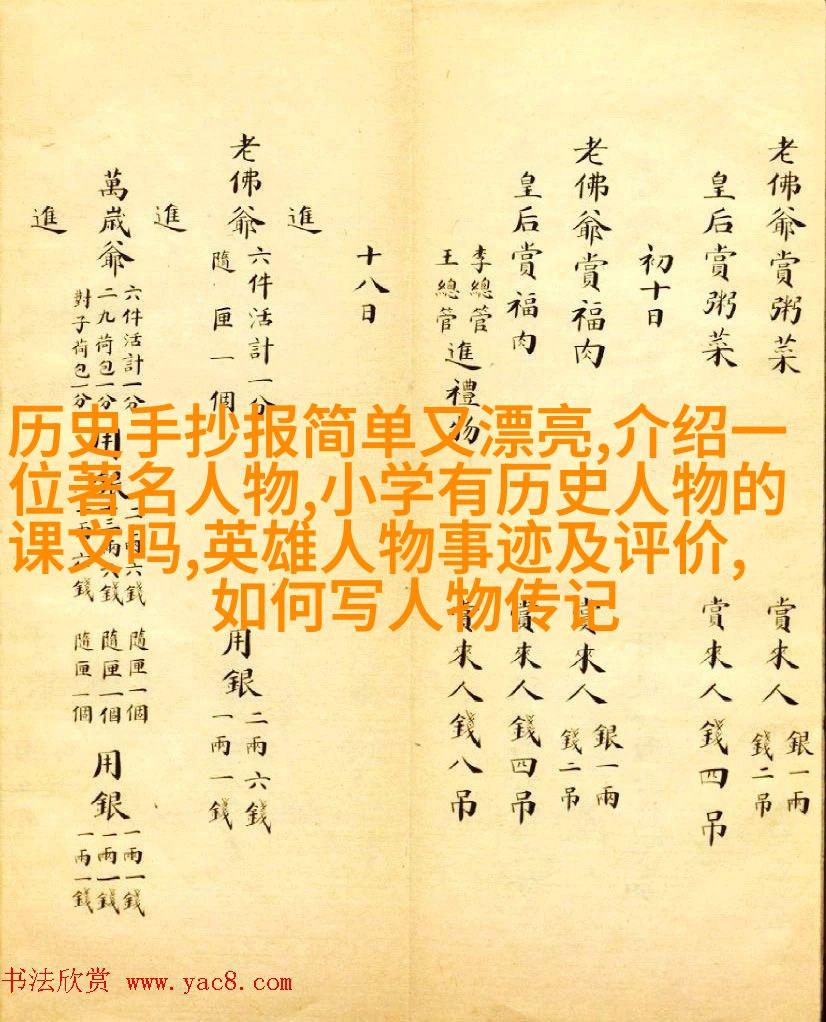 老佛爺賞粥菜 賞來人 銀一兩 錢二吊
皇后賞粥菜 賞來人錢四吊
初十日
老佛爺賞福肉 賞來人 銀一兩 錢二吊
皇后賞福肉 賞來人錢四吊
李總管 王總管 進禮物 賞來人錢八吊
十八日
進
老佛爺 六件活計一分 隨匣一個 用銀 二兩六錢 一兩一錢
進
萬歲爺 六件活計一分 二九荷包一分 對子荷包一分 用銀 二兩六錢 三兩六錢 隨匣一個 隨匣一個 隨匣一個 用銀 一兩一錢 一兩一錢 一兩一錢
進
历史手抄报简单又漂亮,介绍一
位著名人物,小学有历史人物的
课文吗,英雄人物事迹及评价,
如何写人物传记
书法欣赏 www.yac8.com